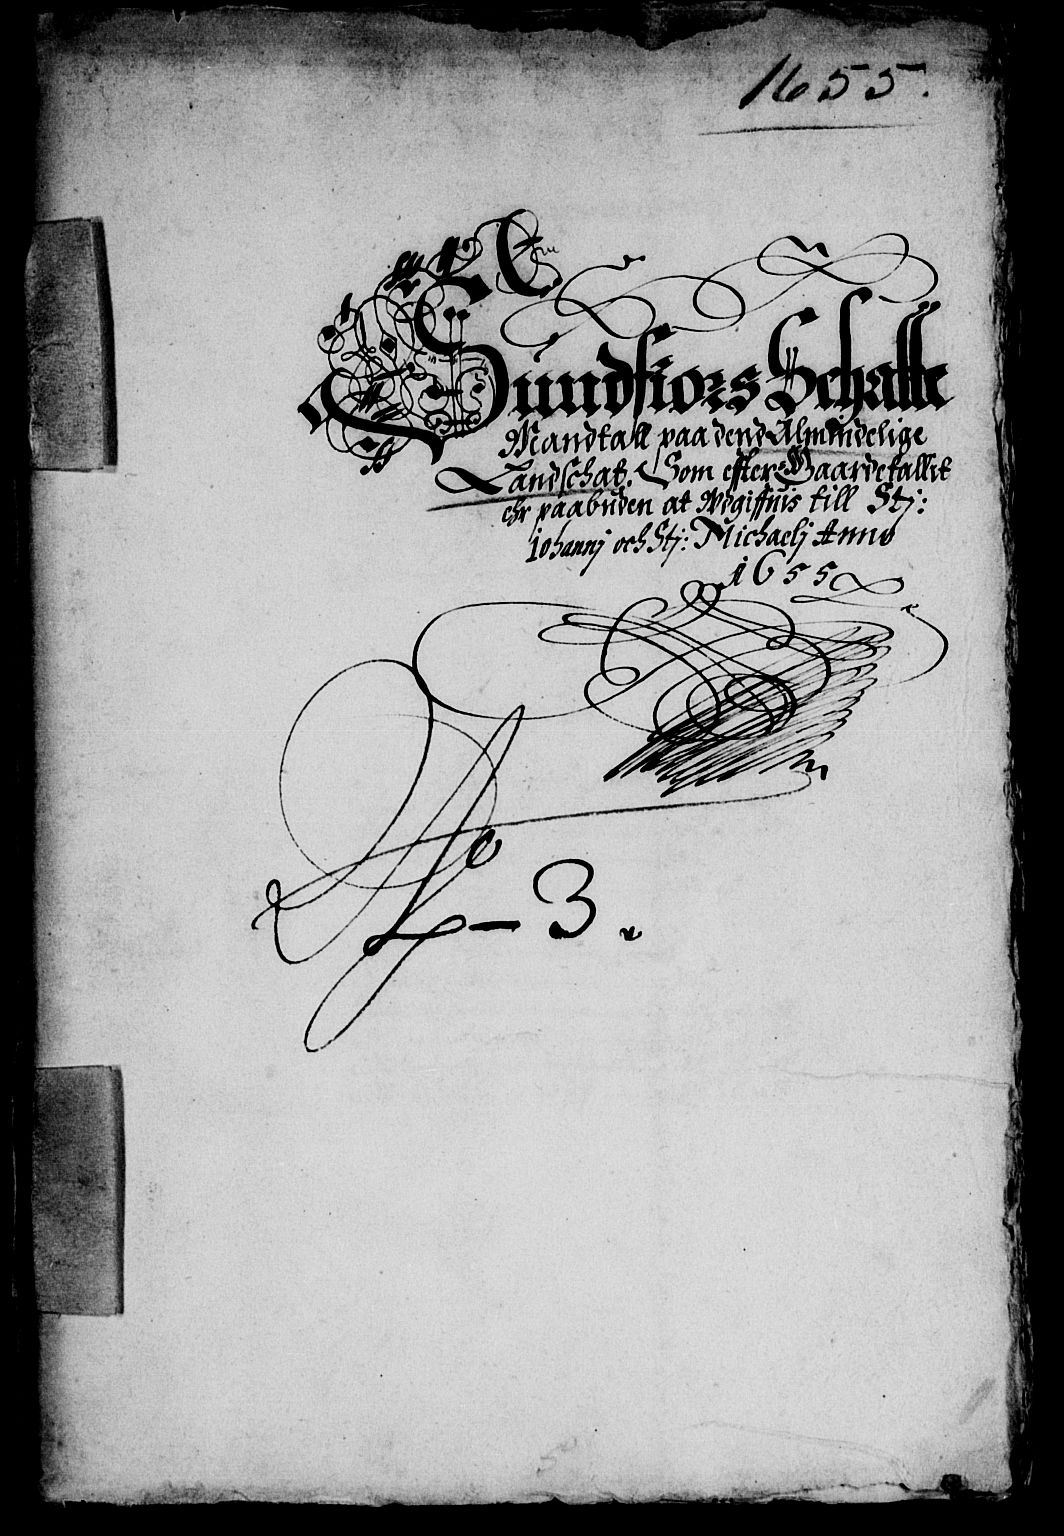 1655.
Sundfiors Schatte
Mandtall paa dend Almindelige
Landschat. Som effter Gaardetallit
ehr paabuden at Wdgiffuis till Stj:
Johannj och Stj: Michaelj Anno
1655
No - 3.